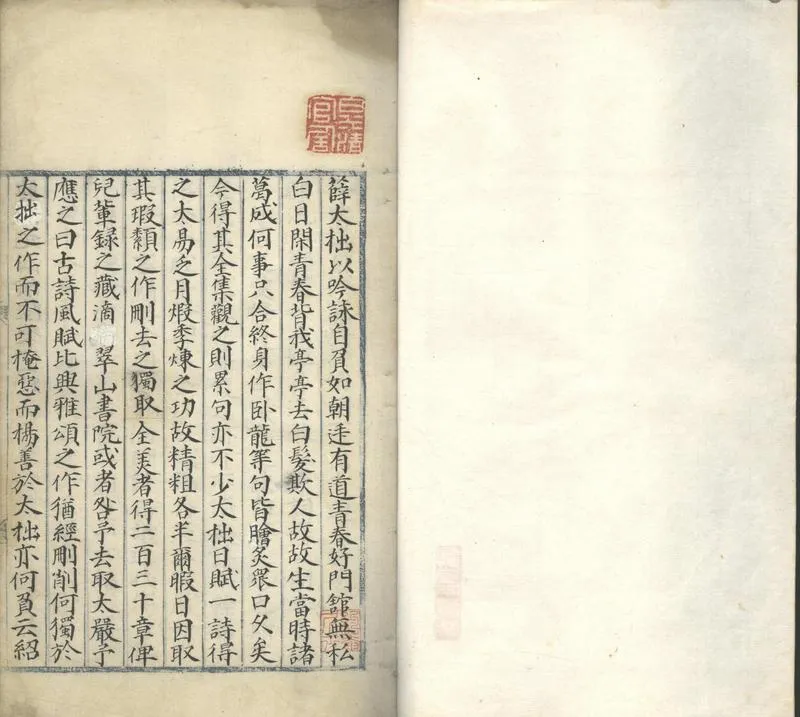 薛太拙以吟詠自負如朝廷有道青春好門館無私
白日閑青春背我亭亭去白髮欺人故故生當時諸
葛成何事只合終身作卧龍等句皆膾炙衆口久矣
今得其全集觀之則累句亦不少太拙日賦一詩得
之太易乏月煅季煉之功故精粗各半爾暇日因取
其瑕纇之作刪去之獨取全美者得二百三十章俾
兒輩録之藏滴翠山書院或者咎予去取太嚴予
應之曰古詩風賦比興雅頌之作猶經刪削何獨於
太拙之作而不可掩惡而揚善於太拙亦何負云紹